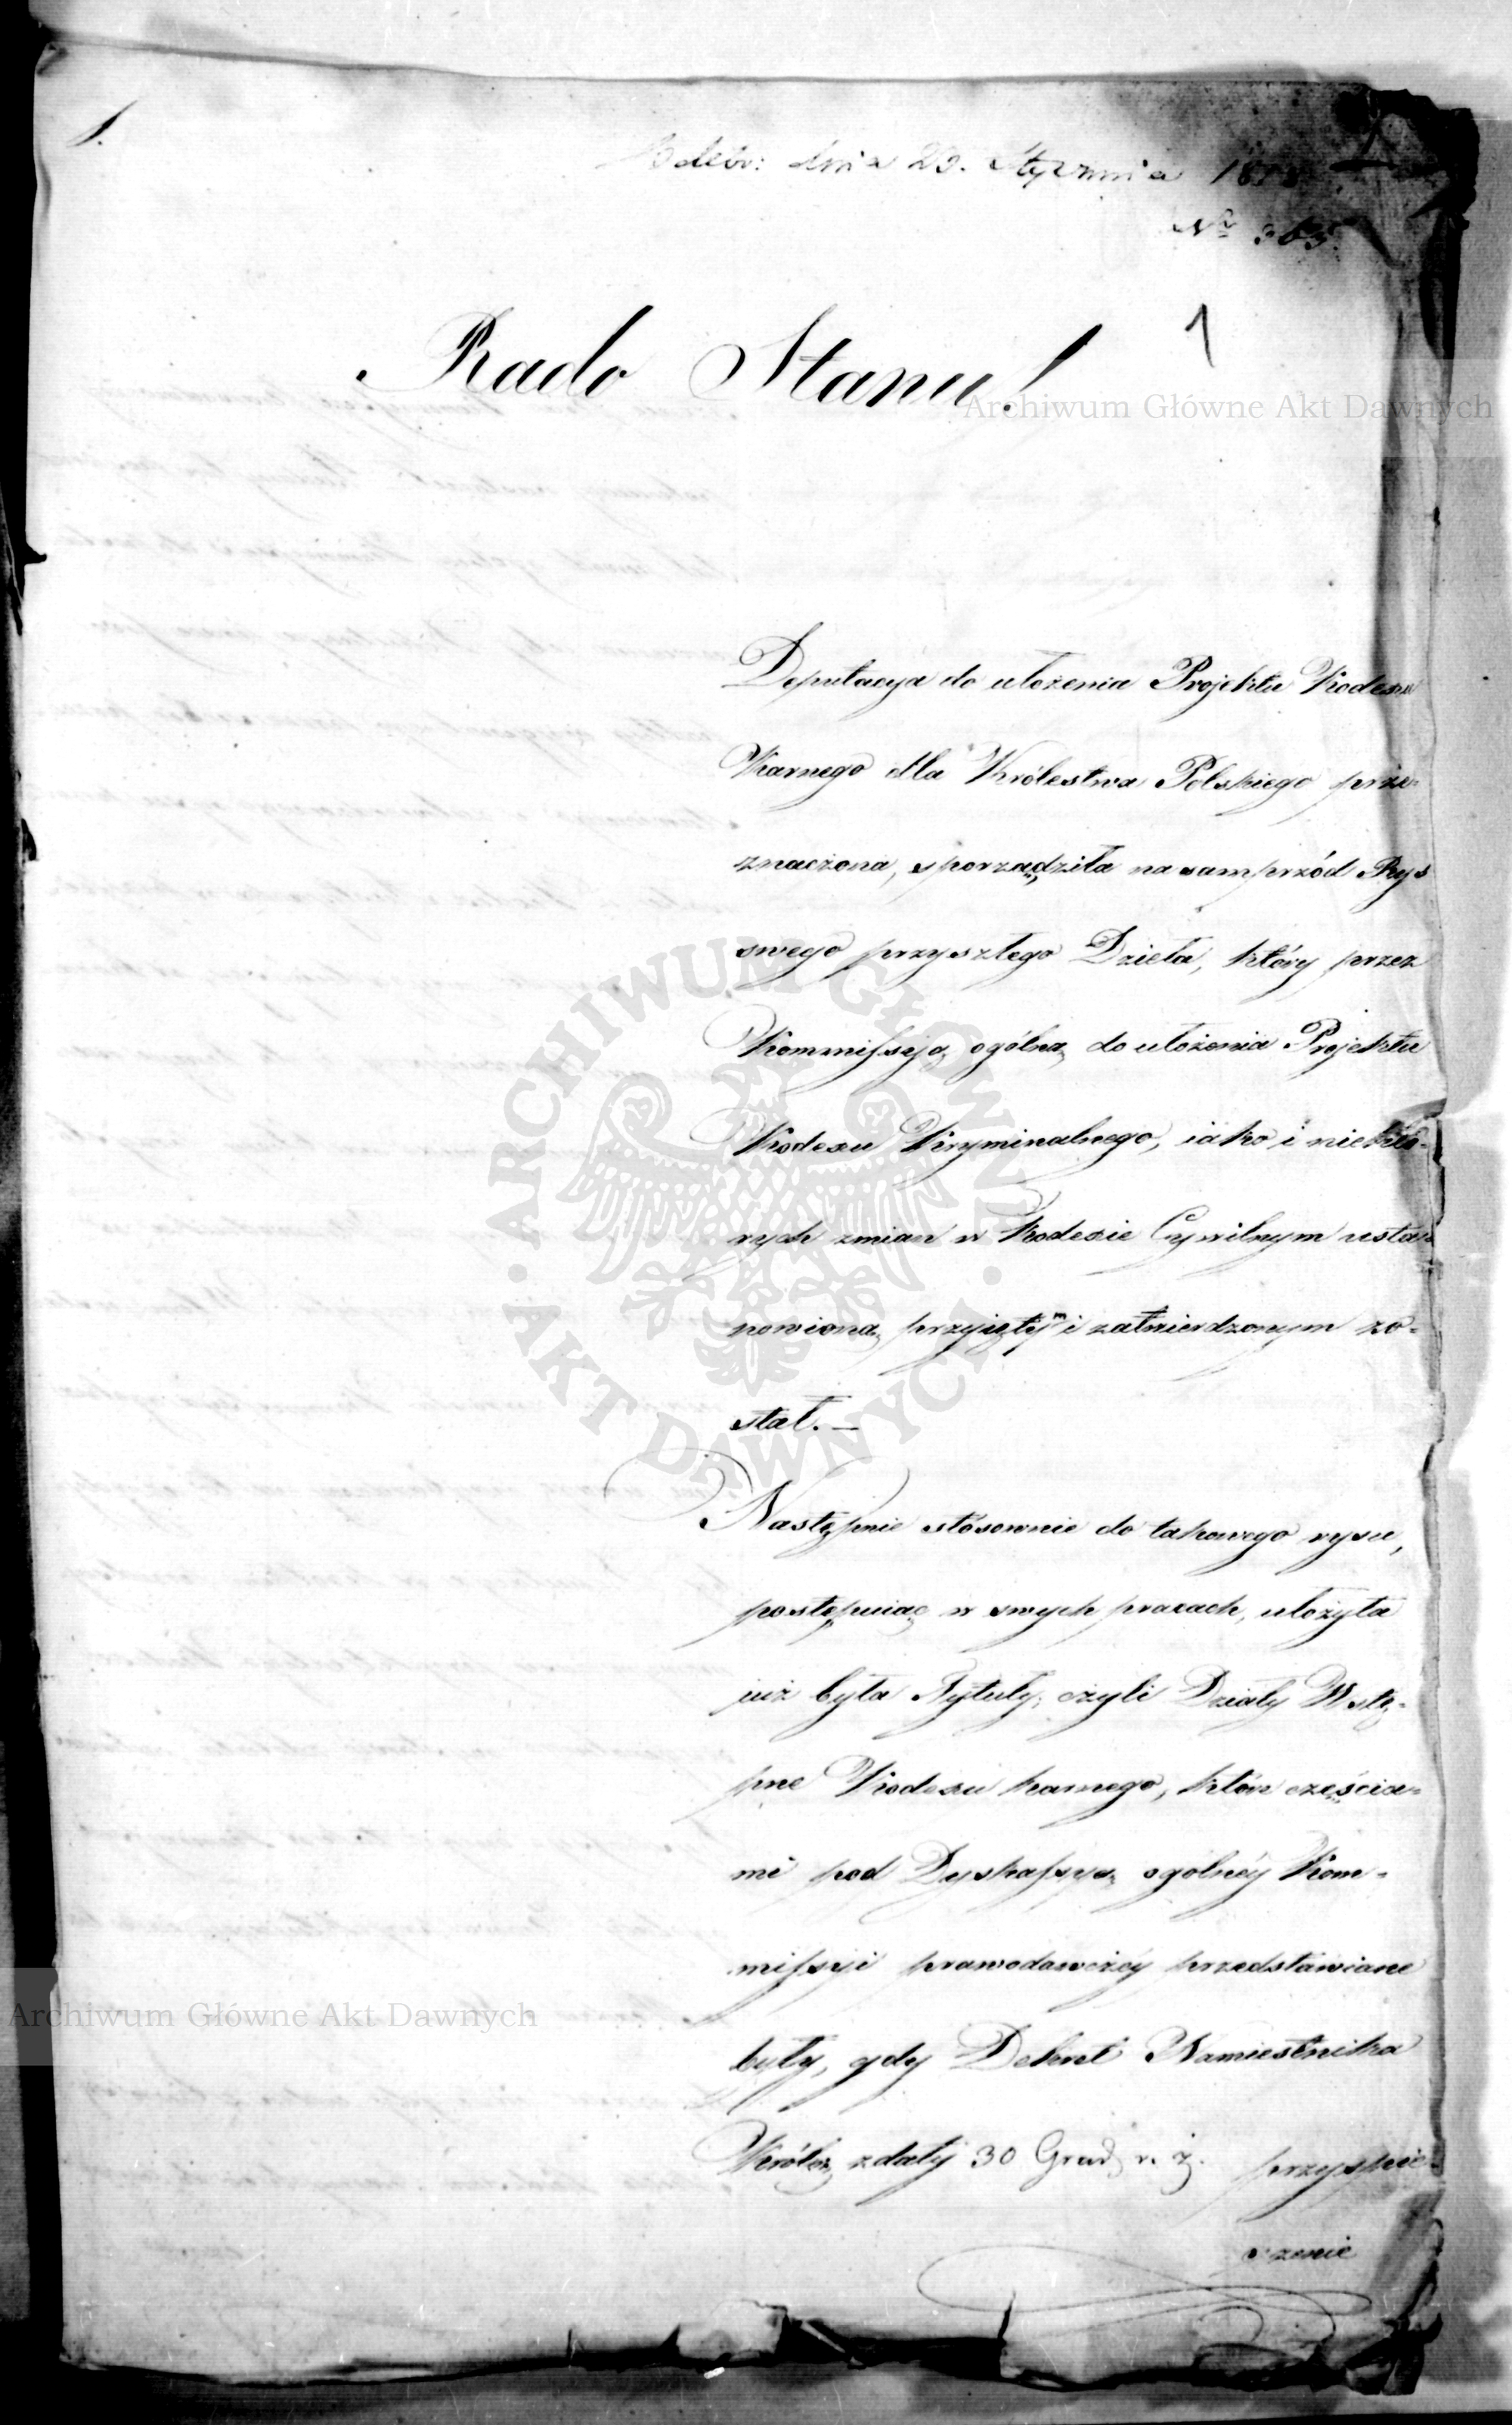 1.
dnia 23. Stycznia 18
No 365.
1
Rado Stanu!
Archiwum Główne Akt Dawnych
Deputacya do ułożenia Projektu Kodexu
Karnego dla Królestwa Polskiego prze-
znaczona, sporządziła na samprzód Rys
swego przyszłego Dzieła, który przez
Kommissyją ogólną do ułożenia Projektu
Kodexu Kryminalnego, iako i niektó-
rych zmian w Kodexie Cywilnym usta-
nowioną przyiętym i zatwierdzonym zo-
stał. —
Następnie stosownie do takowego rysu,
postępuiąc w swych pracach, ułożyła
już była Tytuły, czyli Działy Wstę-
pne Kodexu karnego, które częścia-
mi pod Dyskussyą ogólnéy Kom-
missyi prawodawczéy przedstawiane
były, gdy Dekret Namiestnika
Królew: z daty 30 Grud: r. z. przyspie-
szenie
ARCHIWUM GŁÓWNE • AKT DAWNYCH •
Archiwum Główne Akt Dawnych